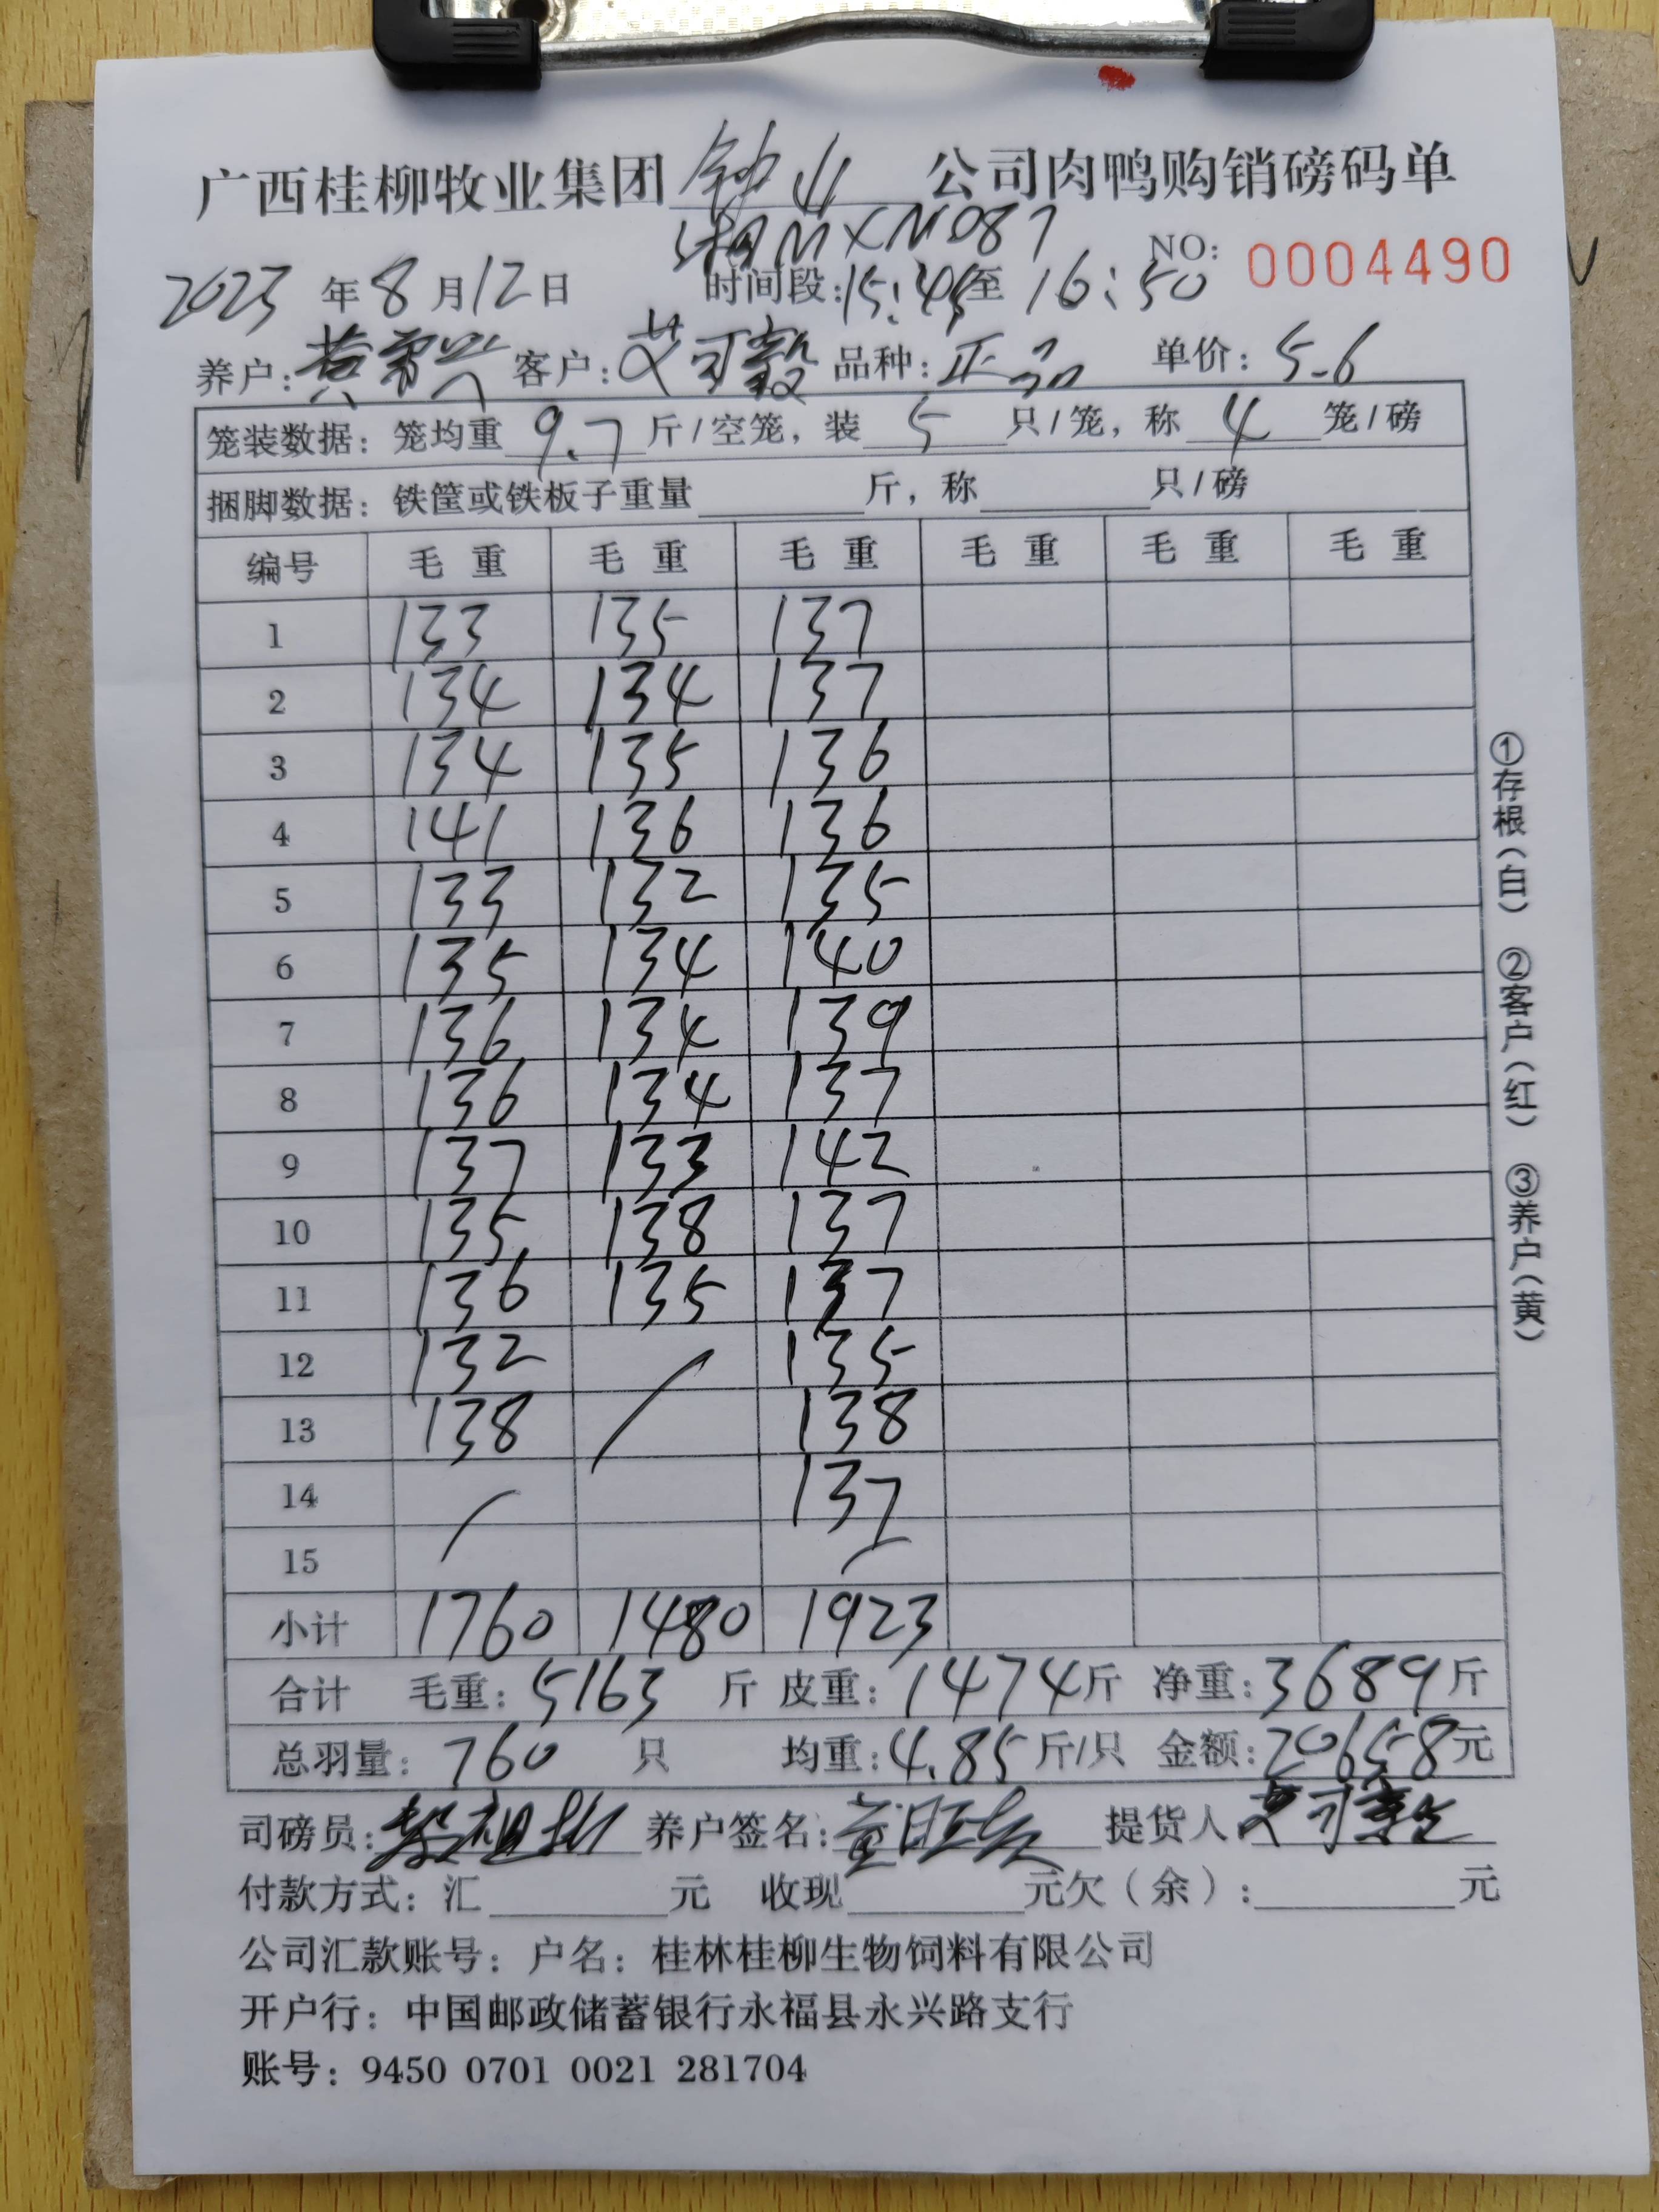 广西桂柳牧业集团 钟山 公司肉鸭购销磅码单
湘MXM087
NO: 0004490
2023 年 8 月 12 日 时间段: 15:45 至 16:50
养户: 黄 兴 客户: 艾可毅 品种: 正品 单价: 5.6
笼装数据: 笼均重 9.7 斤/空笼, 装 5 只/笼, 称 4 笼/磅
捆脚数据: 铁筐或铁板子重量 斤, 称 只/磅
编号 毛重 毛重 毛重 毛重 毛重 毛重
1 133 135 137
2 134 134 137
3 134 135 136
4 141 136 136
5 133 132 135
6 135 134 140
7 136 134 139
8 136 134 137
9 137 133 142
10 135 138 137
11 136 135 137
12 132 135
13 138 138
14 137
15
小计 1760 1480 1923
合计 毛重: 5163 斤 皮重: 1474 斤 净重: 3689 斤
总羽量: 760 只 均重: 4.85 斤/只 金额: 20658 元
司磅员: 养户签名: 提货人
付款方式: 汇 元 收现 元欠(余): 元
公司汇款账号: 户名: 桂林桂柳生物饲料有限公司
开户行: 中国邮政储蓄银行永福县永兴路支行
账号: 9450 0701 0021 281704
①存根(白) ②客户(红) ③养户(黄)